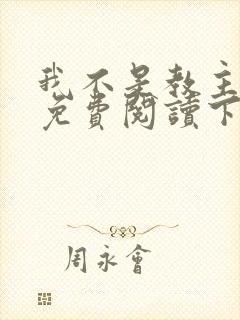 我不是教主
免費閱讀下
周永會